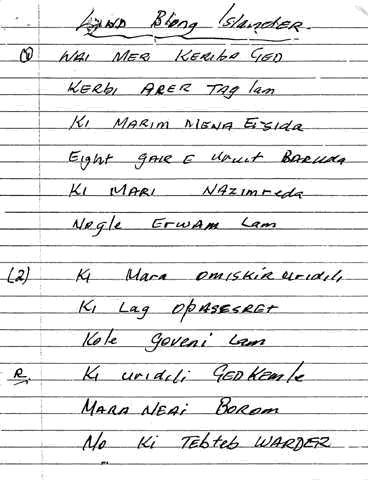 Land Blong Islander.
(1) WAI MER KERIBA GED
KERBI ARER Tag lam
Ki MARIM MENA Eisida
Eight GAIR E uruit BARUDA
Ki MARI NAZimreda
Nogle Erwam Lam
(2) Ki Mara omiskir uridili
Ki Lag OpASESRET
Kole Goveni Lam
R. Ki uridili GED Kemle
MARA NEAi Borom
No Ki Tebteb WARDER